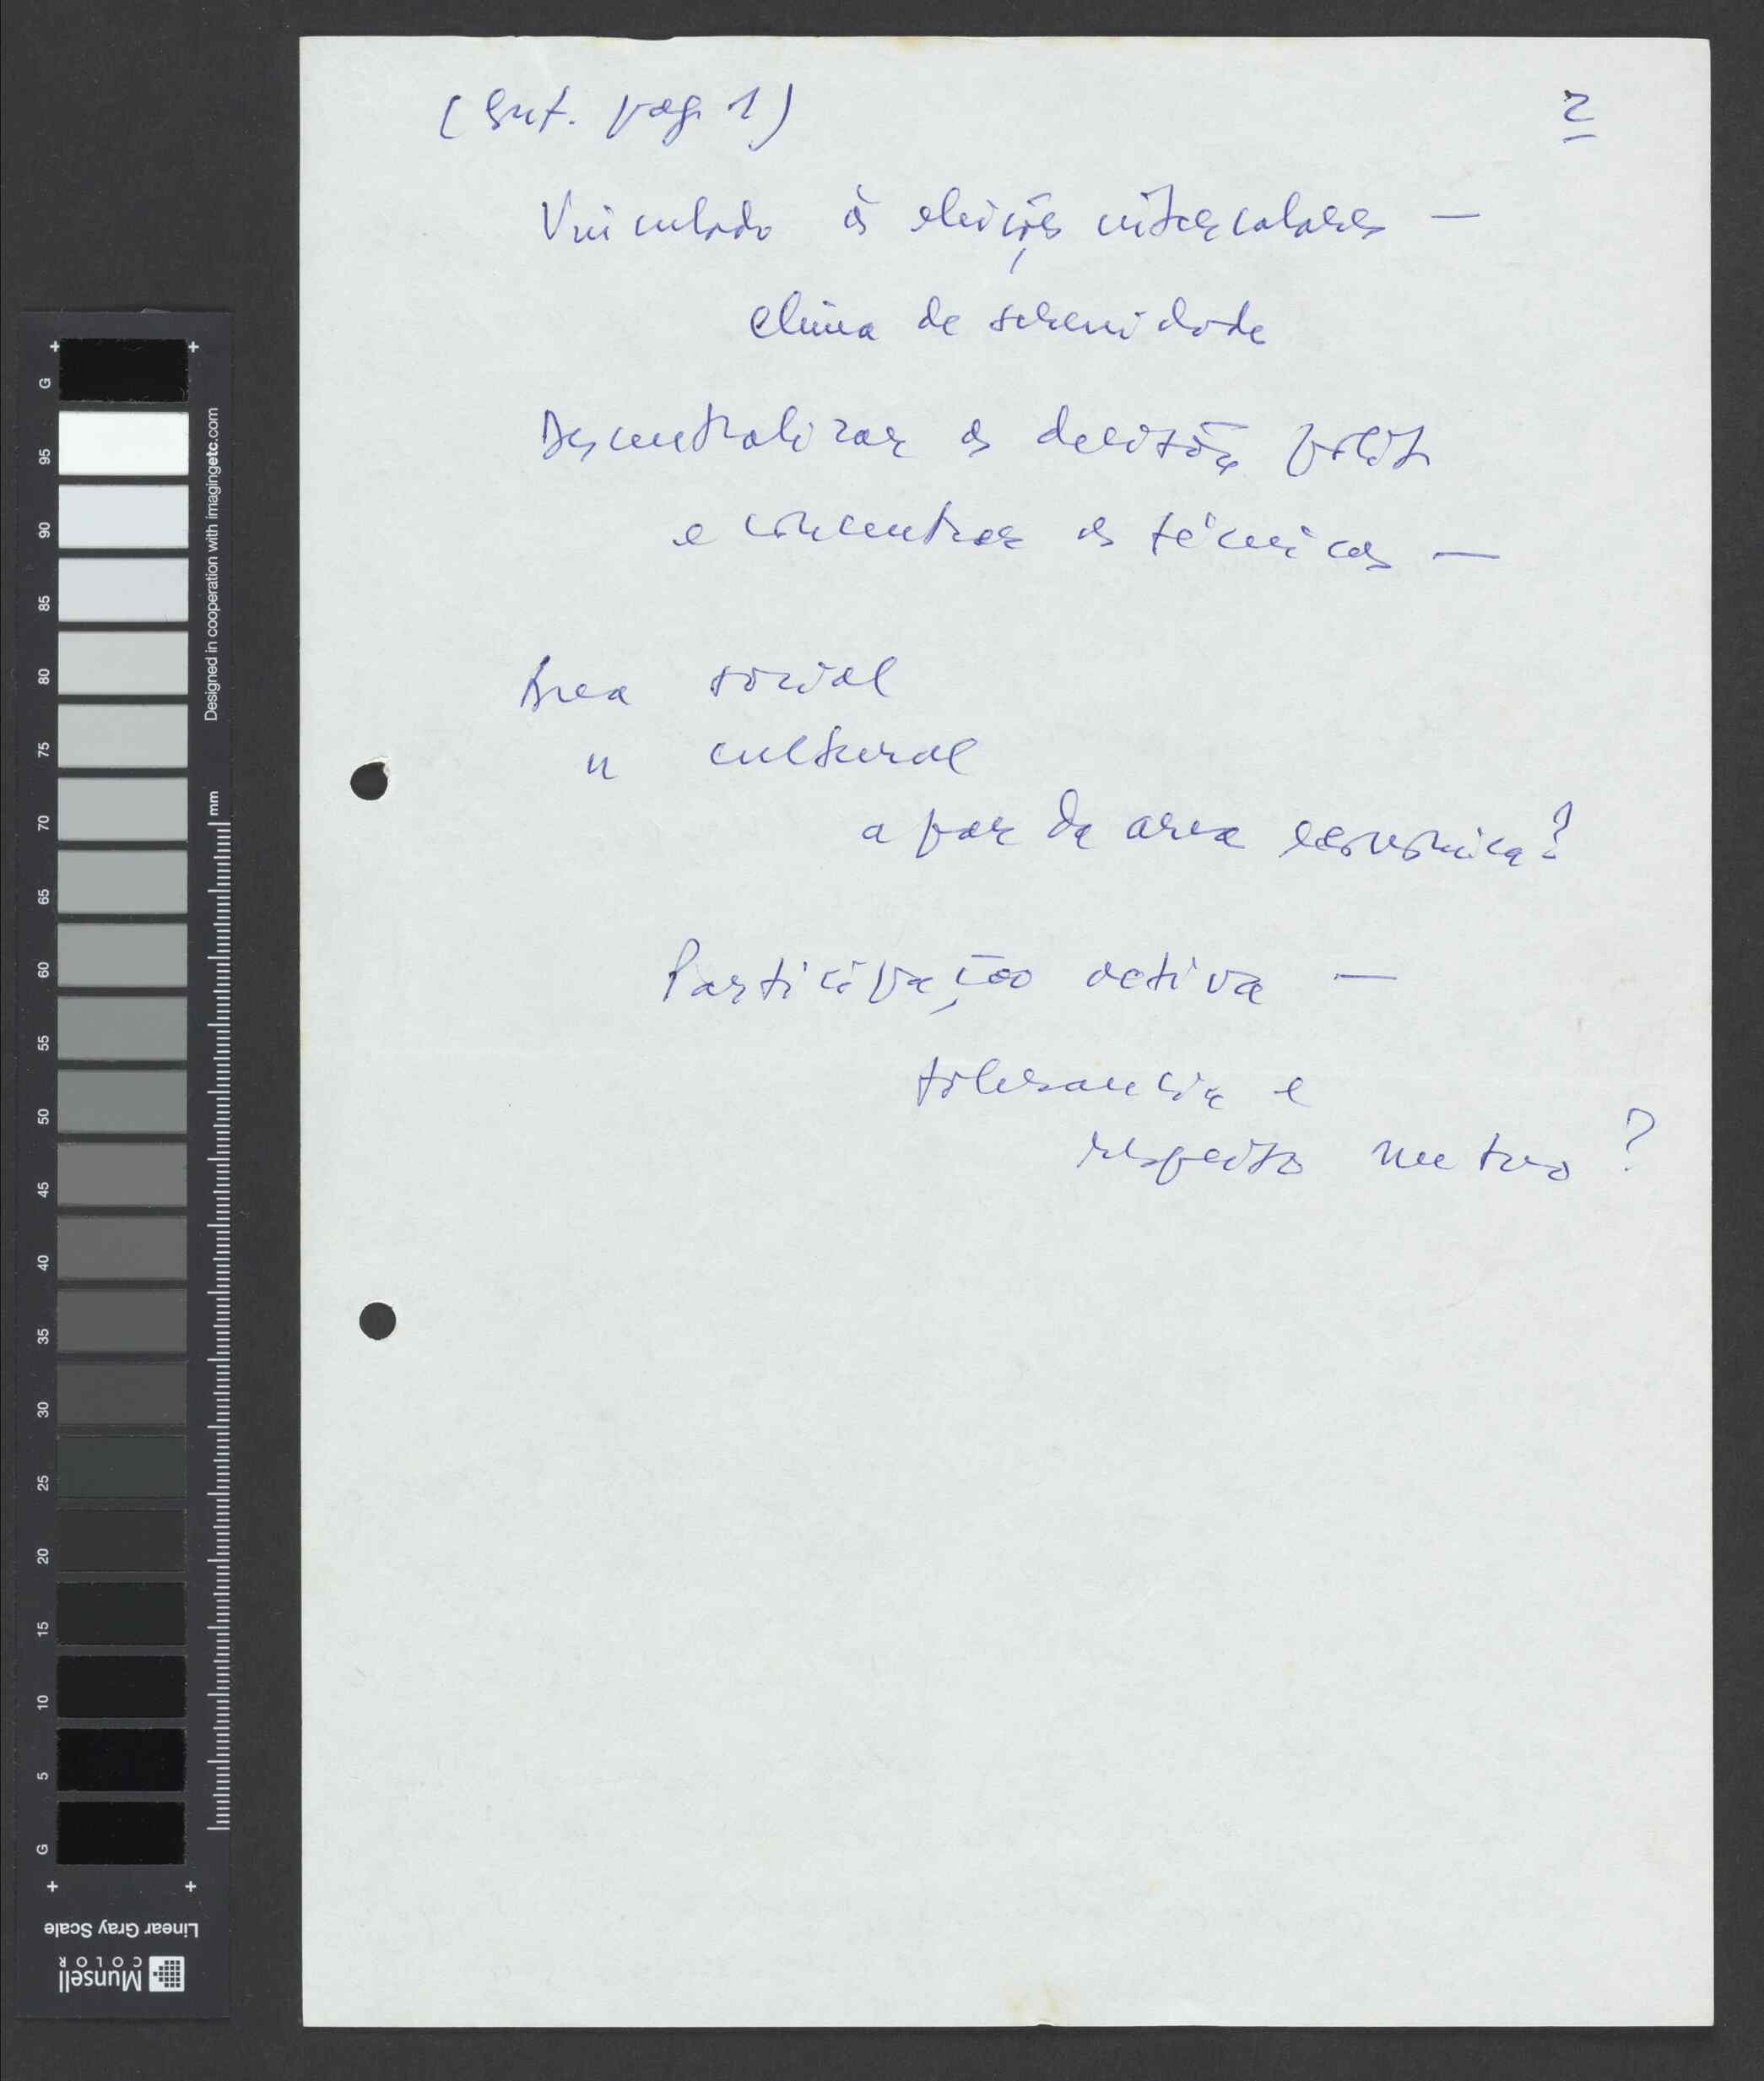 (Ent. pag. 1)
2
Vinculado às eleições intercalares —
clima de serenidade
Descentralizar as decisões polít
e concentrar as técnicas —
Area social
" cultural
a par da area economica?
Participação activa —
tolerancia e
respeito mutuo?
G 95 90 85 80 75 70 65 60 55 50 45 40 35 30 25 20 15 10 5 G
Designed in cooperation with imagingetc.com
mm
Linear Gray Scale
Munsell
COLOR